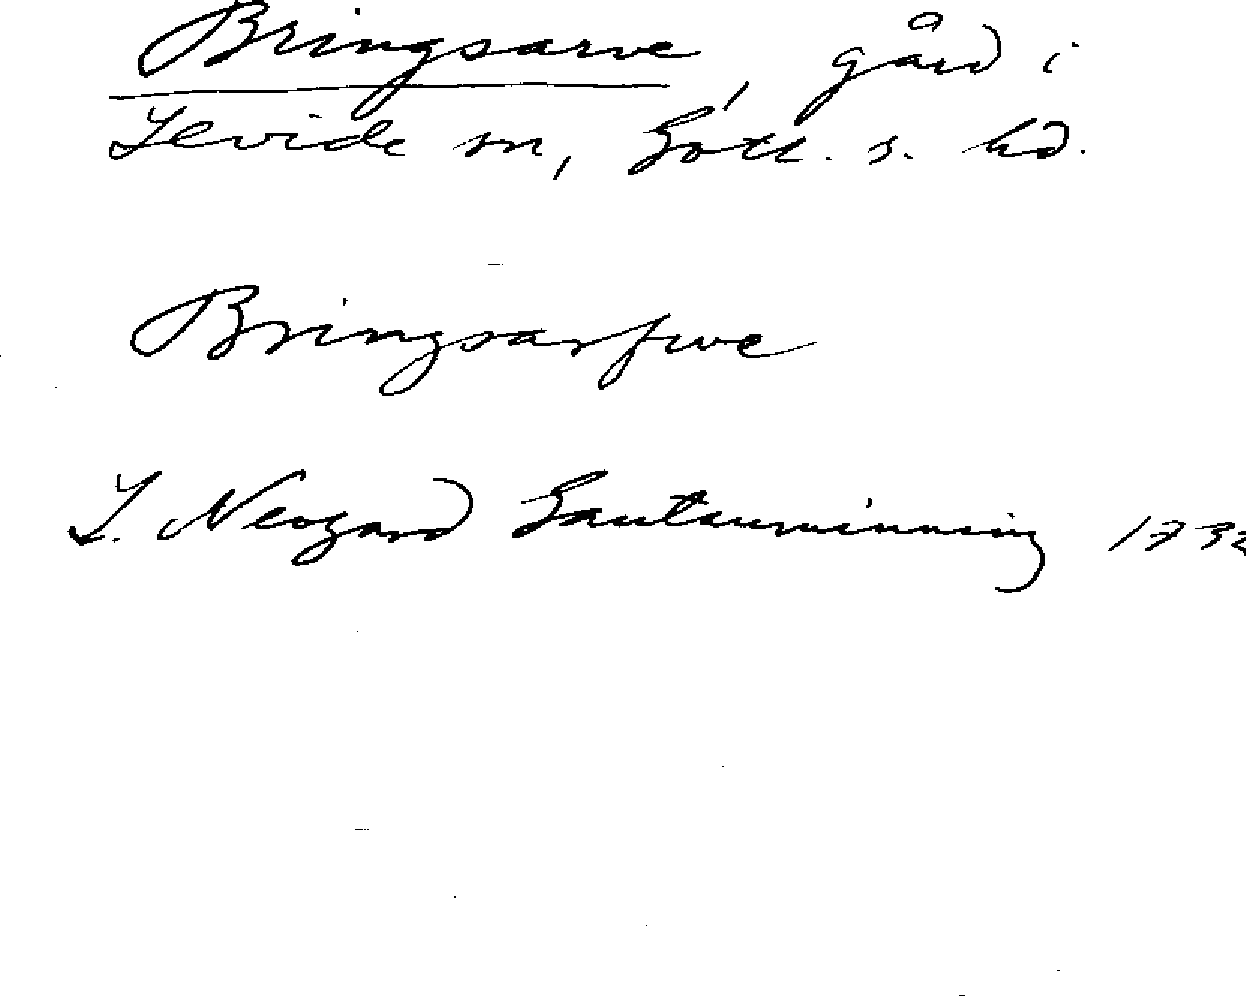 Bringsarve, gård i
Levide sn, Gotl. s. hd.
Bringsarfwe
L. Neogard Gautauminning 1732